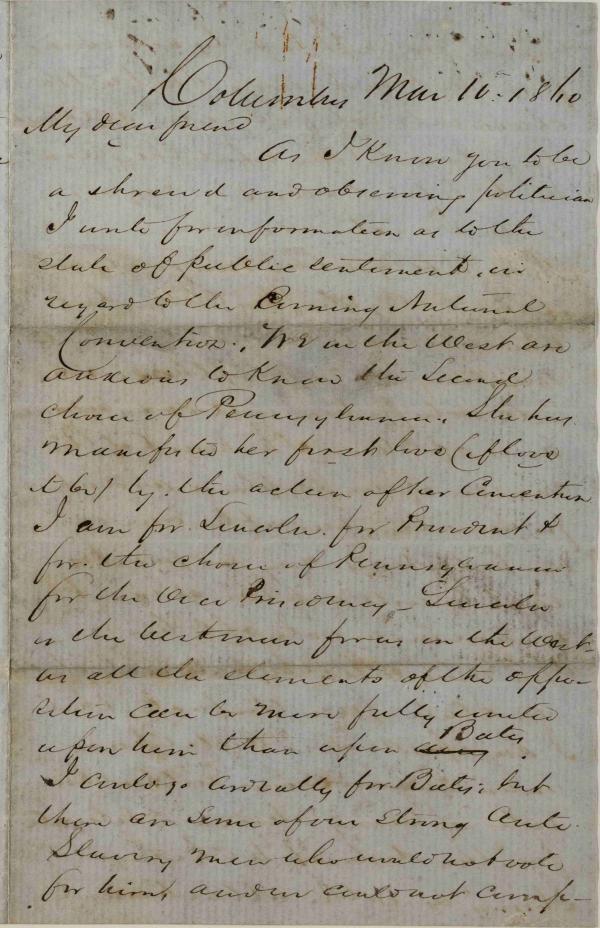 Columbus Mar 10. 1860
My dear friend
As I Know you to be
a shrewd and observing politician
I write for information as to the
state of public sentiment, in
regard to the Coming National
Convention. We in the West are
anxious to Know the Second
choice of Pennsylvania. She has
manifested her first love (if love
it be) by the action of her Convention
I am for Lincoln for President &
for the choice of Pennsylvania
for the Vice Presidency – Lincoln
is the best man for us in the West
as all the elements of the oppo-
sition can be more fully united
upon him than upon Bates
I could go cordially for Bates, but
there are Some of our Strong Anti
Slavery men who would not vote
for him, and we could not comp-